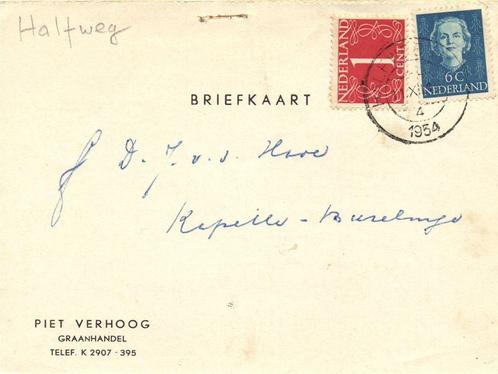 Halfweg
NEDERLAND 1 CENT
6 C
NEDERLAND
4
1954
BRIEFKAART
D. J. v. d. Hove
Kapelle-Biezelinge
PIET VERHOOG
GRAANHANDEL
TELEF. K 2907 - 395